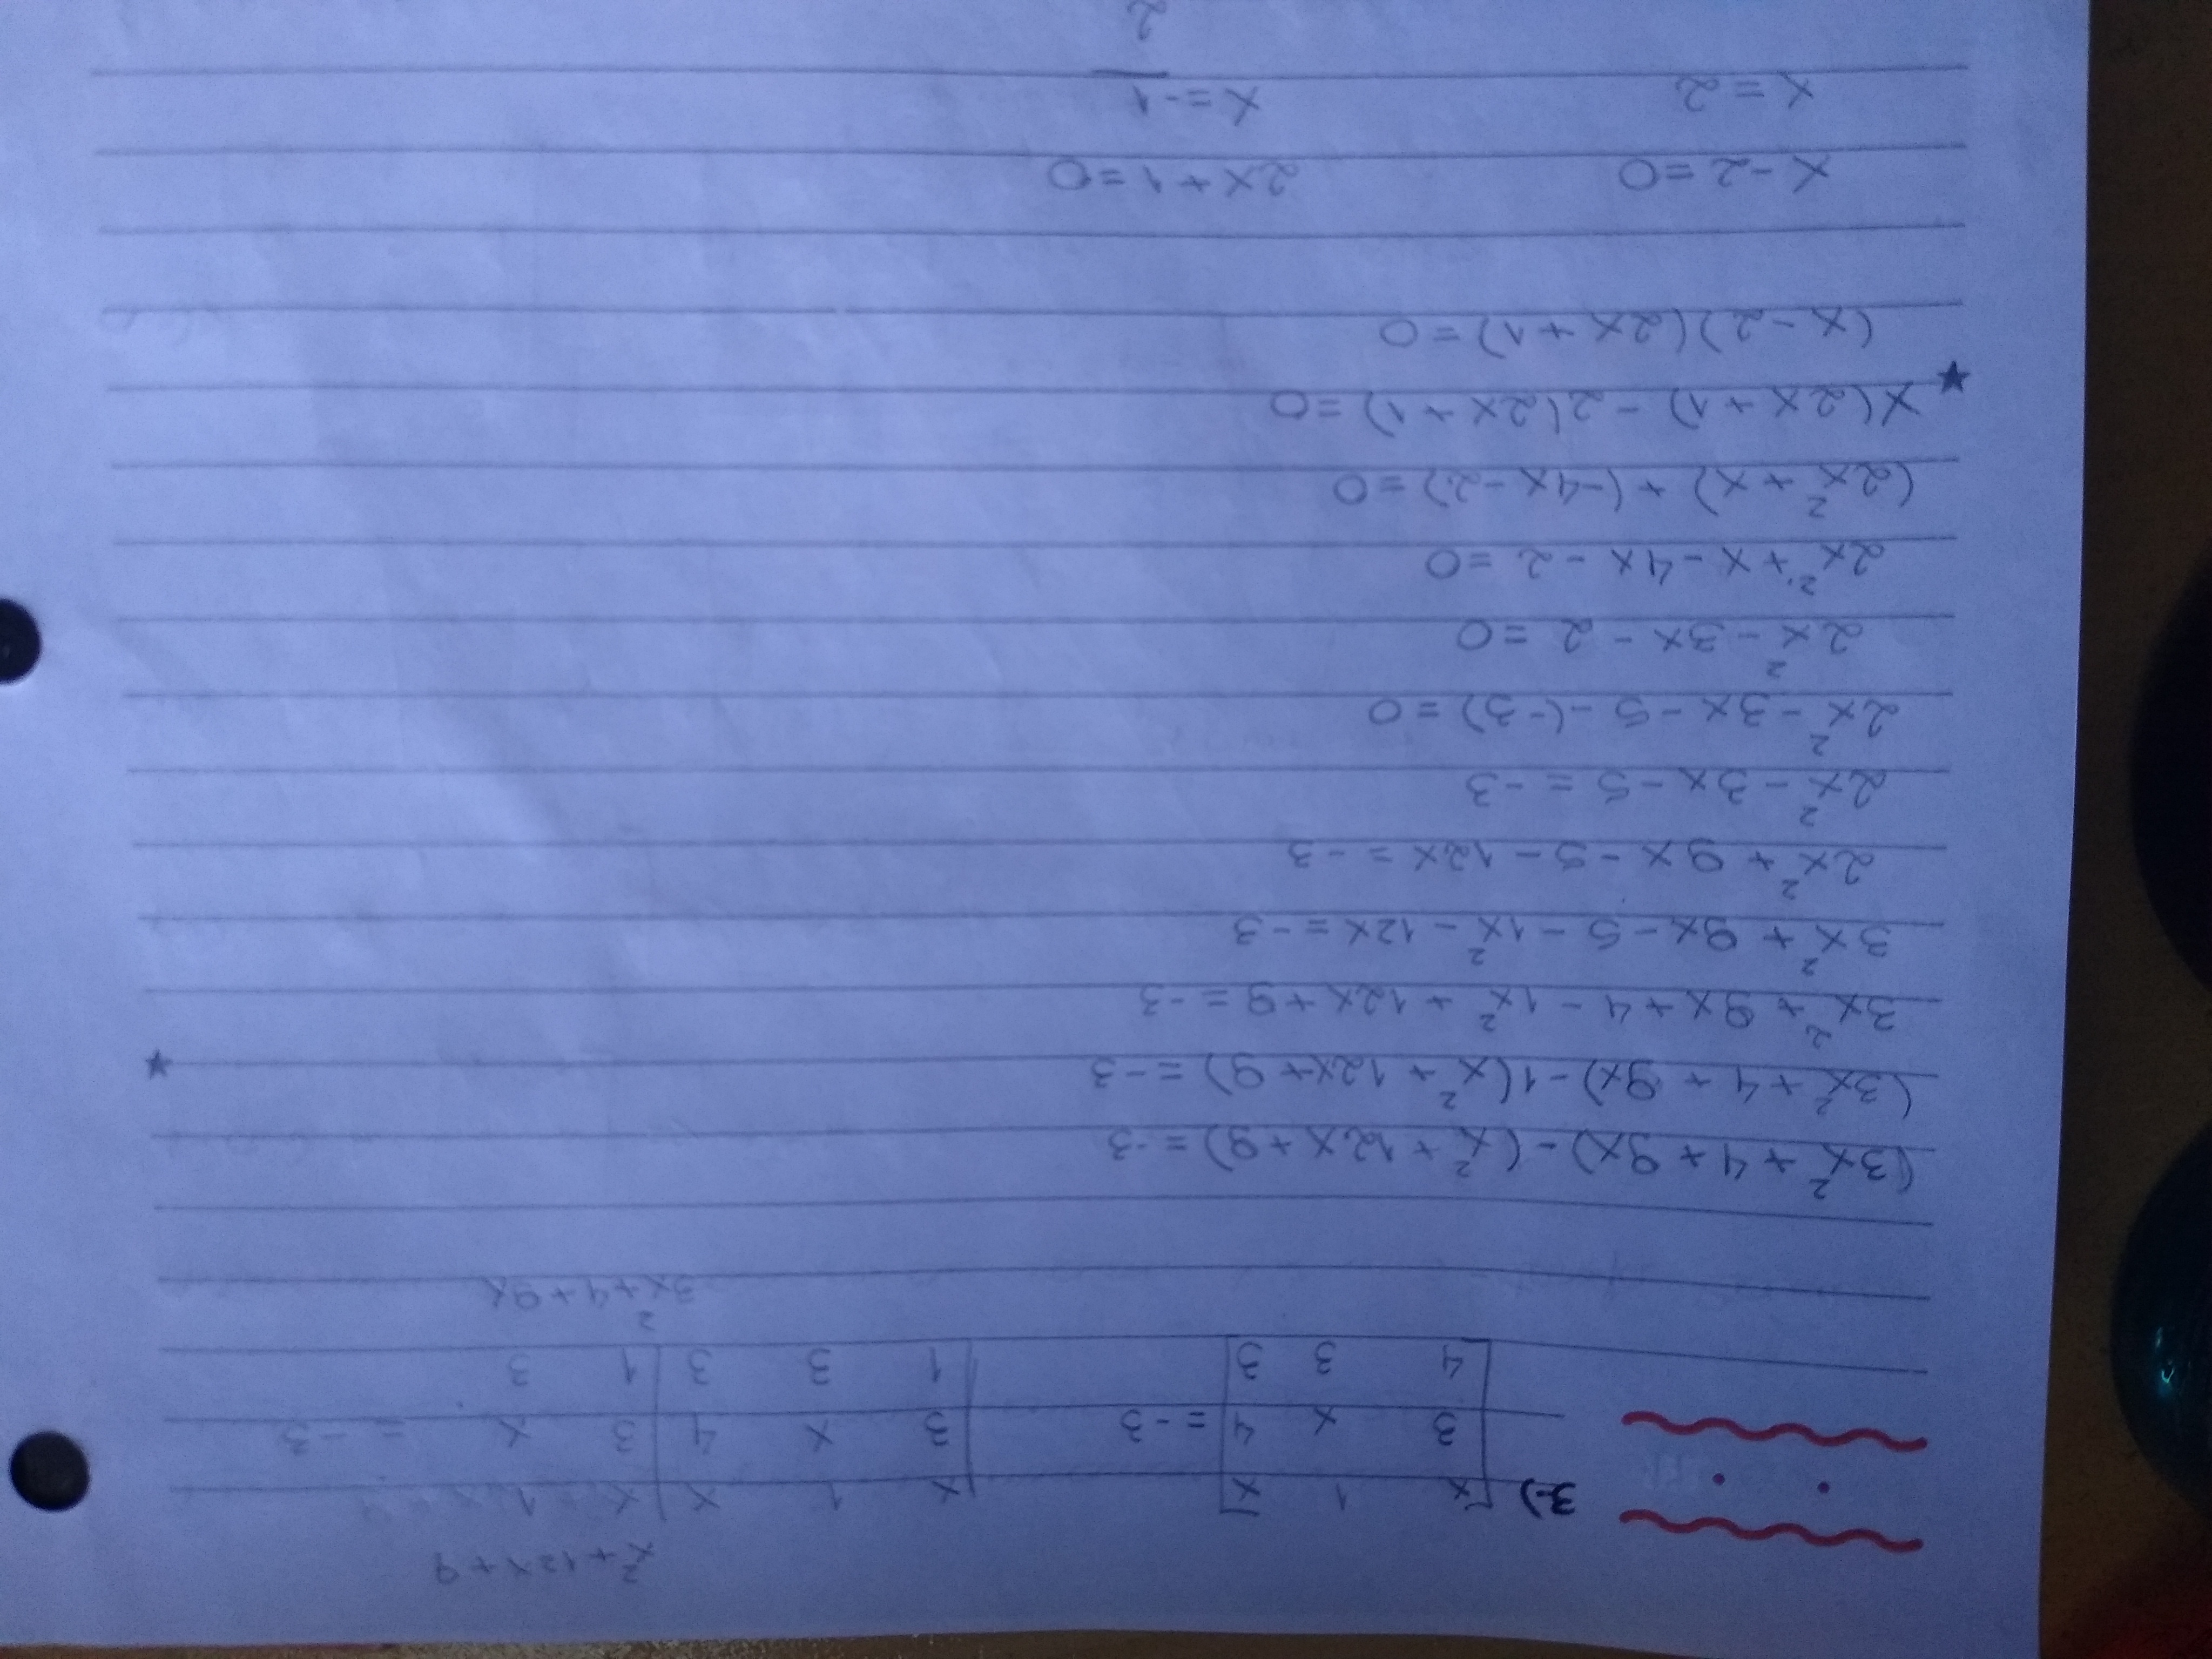 x² + 12x + 9
3.) x 1 x x 1 x x 1
3 x 4 = -3 3 x 4 3 x = -3
4 3 3 1 3 3 1 3
3x² + 4 + 9x
(3x² + 4 + 9x) - (x² + 12x + 9) = -3
(3x² + 4 + 9x) - 1(x² + 12x + 9) = -3
3x² + 9x + 4 - 1x² + 12x + 9 = -3
3x² + 9x - 5 - 1x² - 12x = -3
2x² + 9x - 5 - 12x = -3
2x² - 3x - 5 = -3
2x² - 3x - 5 - (-3) = 0
2x² - 3x - 2 = 0
2x² + x - 4x - 2 = 0
(2x² + x) + (-4x - 2) = 0
x(2x + 1) - 2(2x + 1) = 0
(x - 2)(2x + 1) = 0
x - 2 = 0 2x + 1 = 0
x = 2 x = -1
2